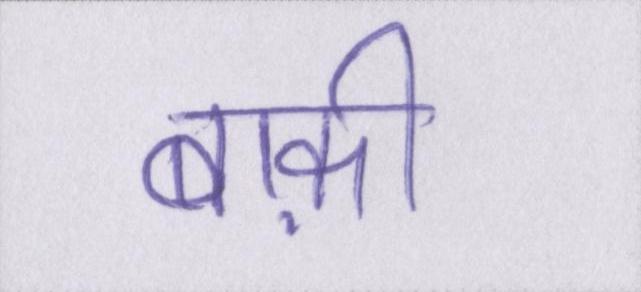 बाक़ी